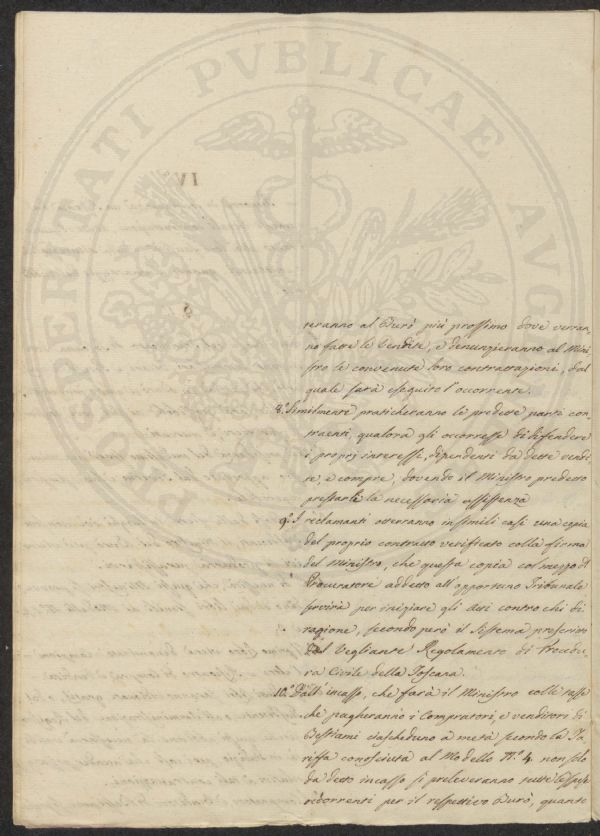 PROSPERITATI PVBLICAE AVG
IV
reranno al Burò più prossimo dove verran-
no fatte le Vendite, e denunzieranno al Mini-
stro le convenute loro contrattazioni, dal
quale sarà eseguito l'occorrente.
8.° Similmente praticheranno le predette parti con-
traenti, qualora gli occorresse di difendere
i proprj interessi, dipendenti da dette vendi-
te, e compre, dovendo il Ministro predetto
prestarli la necessaria assistenza
9.° I reclamanti otterranno in simili casi una copia
del proprio contratto verificato colla firma
del Ministro, che questa copia col mezzo di
Procuratore addetto all'opportuno Tribunale
servirà per iniziare gli Atti contro chi di
ragione, secondo però il Sistema prescritto
dal Vegliante Regolamento di Procedu-
ra Civile della Toscana.
10.° Dall'incasso, che farà il Ministro colle tasse
che pagheranno i Compratori, e venditori di
Bestiami ciascheduno a metà secondo la Ta-
riffa conosciuta al Modello N.° 4. non solo
da detto incasso si preleveranno tutte le spese
ricorrenti per il respettivo Burò, quanto